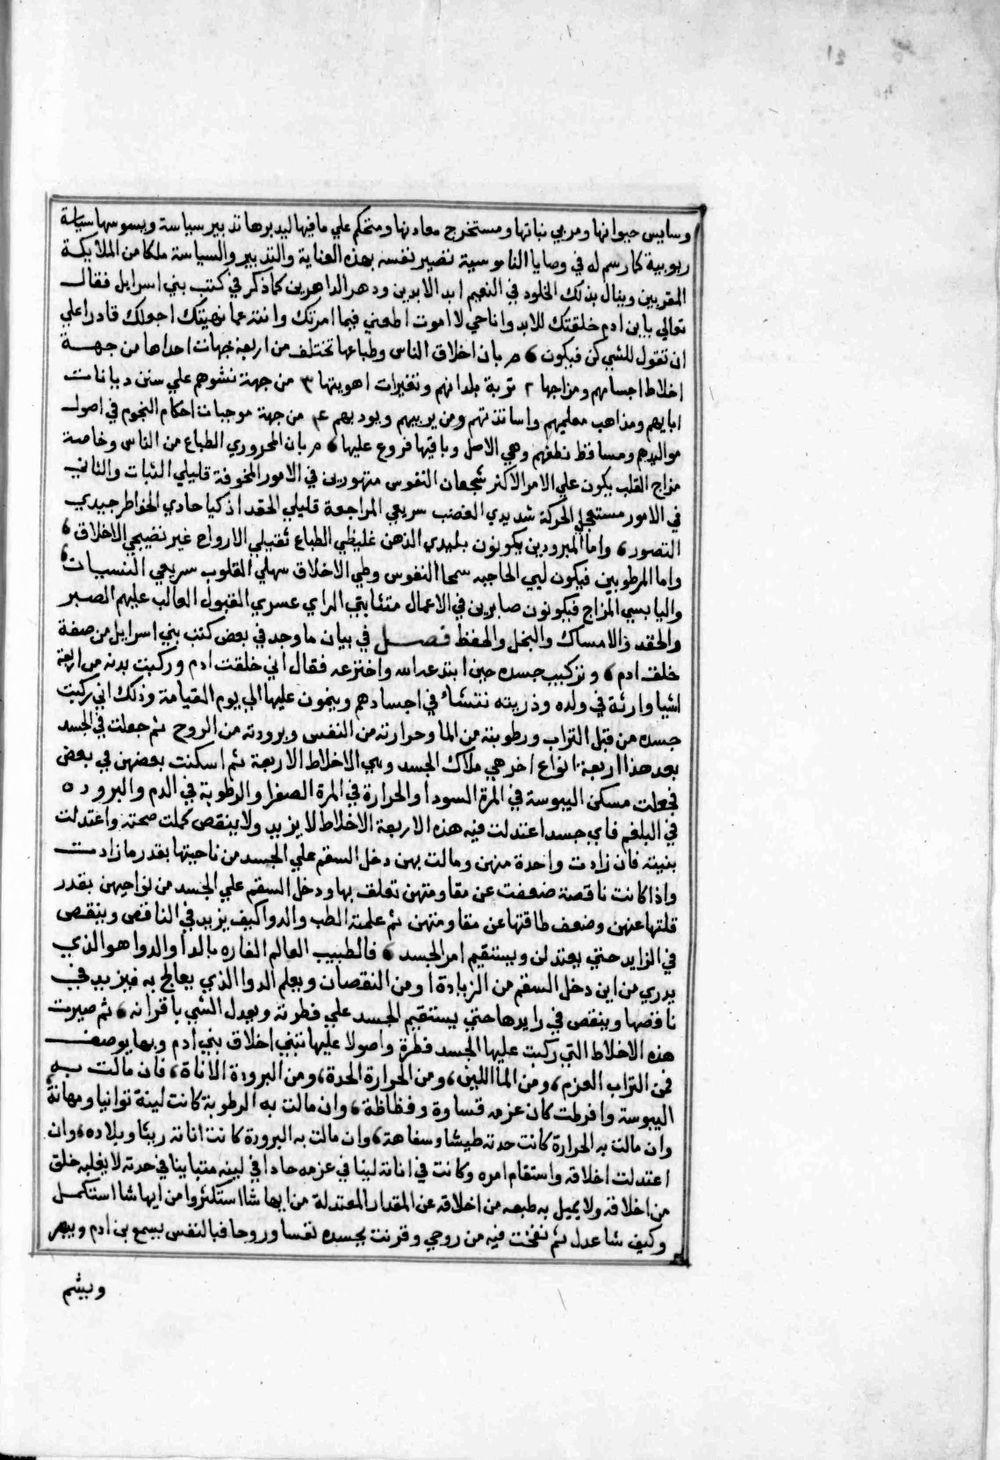 وسايس حيوانها ومربي نباتها ومستخرج معادنها ومتحكم علي ما فيها ليدبرها تدبير سياسة ويسوسها سياسة
ربوبية كما رسم له في وصايا الناموسية تصير نفسه بهذه العناية والتدبير والسياسة ملكا من الملايكة
المقربين وينال بذلك الخلود في النعيم ابد الابدين ودهر الداهرين كما ذكر في كتب بني اسرايل فقال
تعالي يا بن ادم خلقتك للابد وانا حي لا اموت اطعني فيما امرتك وانته عما نهيتك اجعلك قادرا علي
ان تقول للشي كن فيكون م بان اخلاق الناس وطباعها تختلف من اربعة جهات احداها من جهة
اخلاط اجسامهم ومزاجها ٢ تربة بلدانهم وتغيرات اهويتها ٣ من جهة نشوهم علي سنن ديانات
ابايهم ومذاهب معلميهم واساتذتهم ومن يربيهم ويوديهم ۴ من جهة موجبات احكام النجوم في اصول
مواليدهم ومساقط نطفهم وهي الاصل وباقيها فروع عليها م بان المحروري الطباع من الناس وخاصة
مزاج القلب يكون علي الامر الاكثر شجعان النفوس متهورين في الامور المخوفة قليلي الثبات والتاني
في الامور مستعجلي الحركة شديدي الغضب سريعي المراجعة قليلي الحقد اذكيا حادي الخواطر جيدي
التصور واما المبرودين يكونون بليدي الذهن غليظي الطباع ثقيلي الارواح غير نضيجي الاخلاق
واما المرطوبين فيكون لبي الحاجبه سمحا النفوس وطي الاخلاق سهلي القلوب سريعي النسيات
واليابسي المزاج فيكونون صابرين في الاعمال متثابتي الراي عسري القبول الغالب عليهم الصبر
والحقد والامساك والبخل والحفظ فصل في بيان ما وجد في بعض كتب بني اسرايل من صفة
خلق ادم وتركيب جسده حين ابتدعه الله واخترعه فقال اني خلقت ادم وركبت بدنه من اربعة
اشيا وارثة في ولده وذريته تتنشا في اجسادهم وينمون عليها الي يوم القيامة وذلك اني ركبت
جسده من قبل التراب ورطوبته من الما وحرارته من النفس وبرودته من الروح ثم جعلت في الجسد
بعد هذا اربعة انواع اخر هي ملاك الجسد وهي الاخلاط الاربعة ثم اسكنت بعضهن في بعض
فجعلت مسكن اليبوسة في المرة السودا والحرارة في المرة الصفرا والرطوبة في الدم والبرودة
في البلغم فاي جسد اعتدلت فيه هذه الاربعة الاخلاط لا يزيد ولا ينقص كملت صحته واعتدلت
بنيته فان زادت واحدة منهن ومالت بهن دخل السقم علي الجسد من ناحيتها بقدر ما زادت
واذا كانت ناقصة ضعفت عن مقاومتهن تعلف بها ودخل السقم علي الجسد من نواحيهن بقدر
قلتها عنهن وضعف طاقتها عن مقاومتهن ثم علمته الطب والدوا كيف يزيد في الناقص وينقص
في الزايد حتي يعتدلن ويستقيم امر الجسد فالطبيب العالم الفاره بالدا والدوا هو الذي
يدري من اين دخل السقم من الزيادة او من النقصان ويعلم الدوا الذي يعالج به فيزيد في
ناقصها وينقص في زايدها حتي يستقيم الجسد علي فطرته ويعدل الشي باقرانه ثم صيرت
هذه الاخلاط التي ركبت عليها الجسد فطرة واصولا عليها تبني اخلاق بني ادم وبها يوصف
فمن التراب العزم، ومن الما اللين، ومن الحرارة الحدة، ومن البرودة الاناة، فان مالت به
اليبوسة وافرطت كان عزمه قساوة وفظاظة، وان مالت به الرطوبة كانت لينة توانيا ومهانة
وان مالت به الحرارة كانت حدته طيشا وسفاهة، وان مالت به البرودة كانت اناته ريثا وبلاده، وان
اعتدلت اخلاقه واستقام امره وكانت في اناته لينا في عزمه حادا في لينه متباينا في حدته لا يغلبه خلق
من اخلاقه ولا يميل به طبعه من اخلاقه عن المقدار المعتدلة من ايها شا استكثر وا من ايها شا استكمل
وكيف شا عدل ثم نفخت فيه من روحي وقرنت بجسده نفسا وروحا فبالنفس يسمع بن ادم ويبصر
ويشم